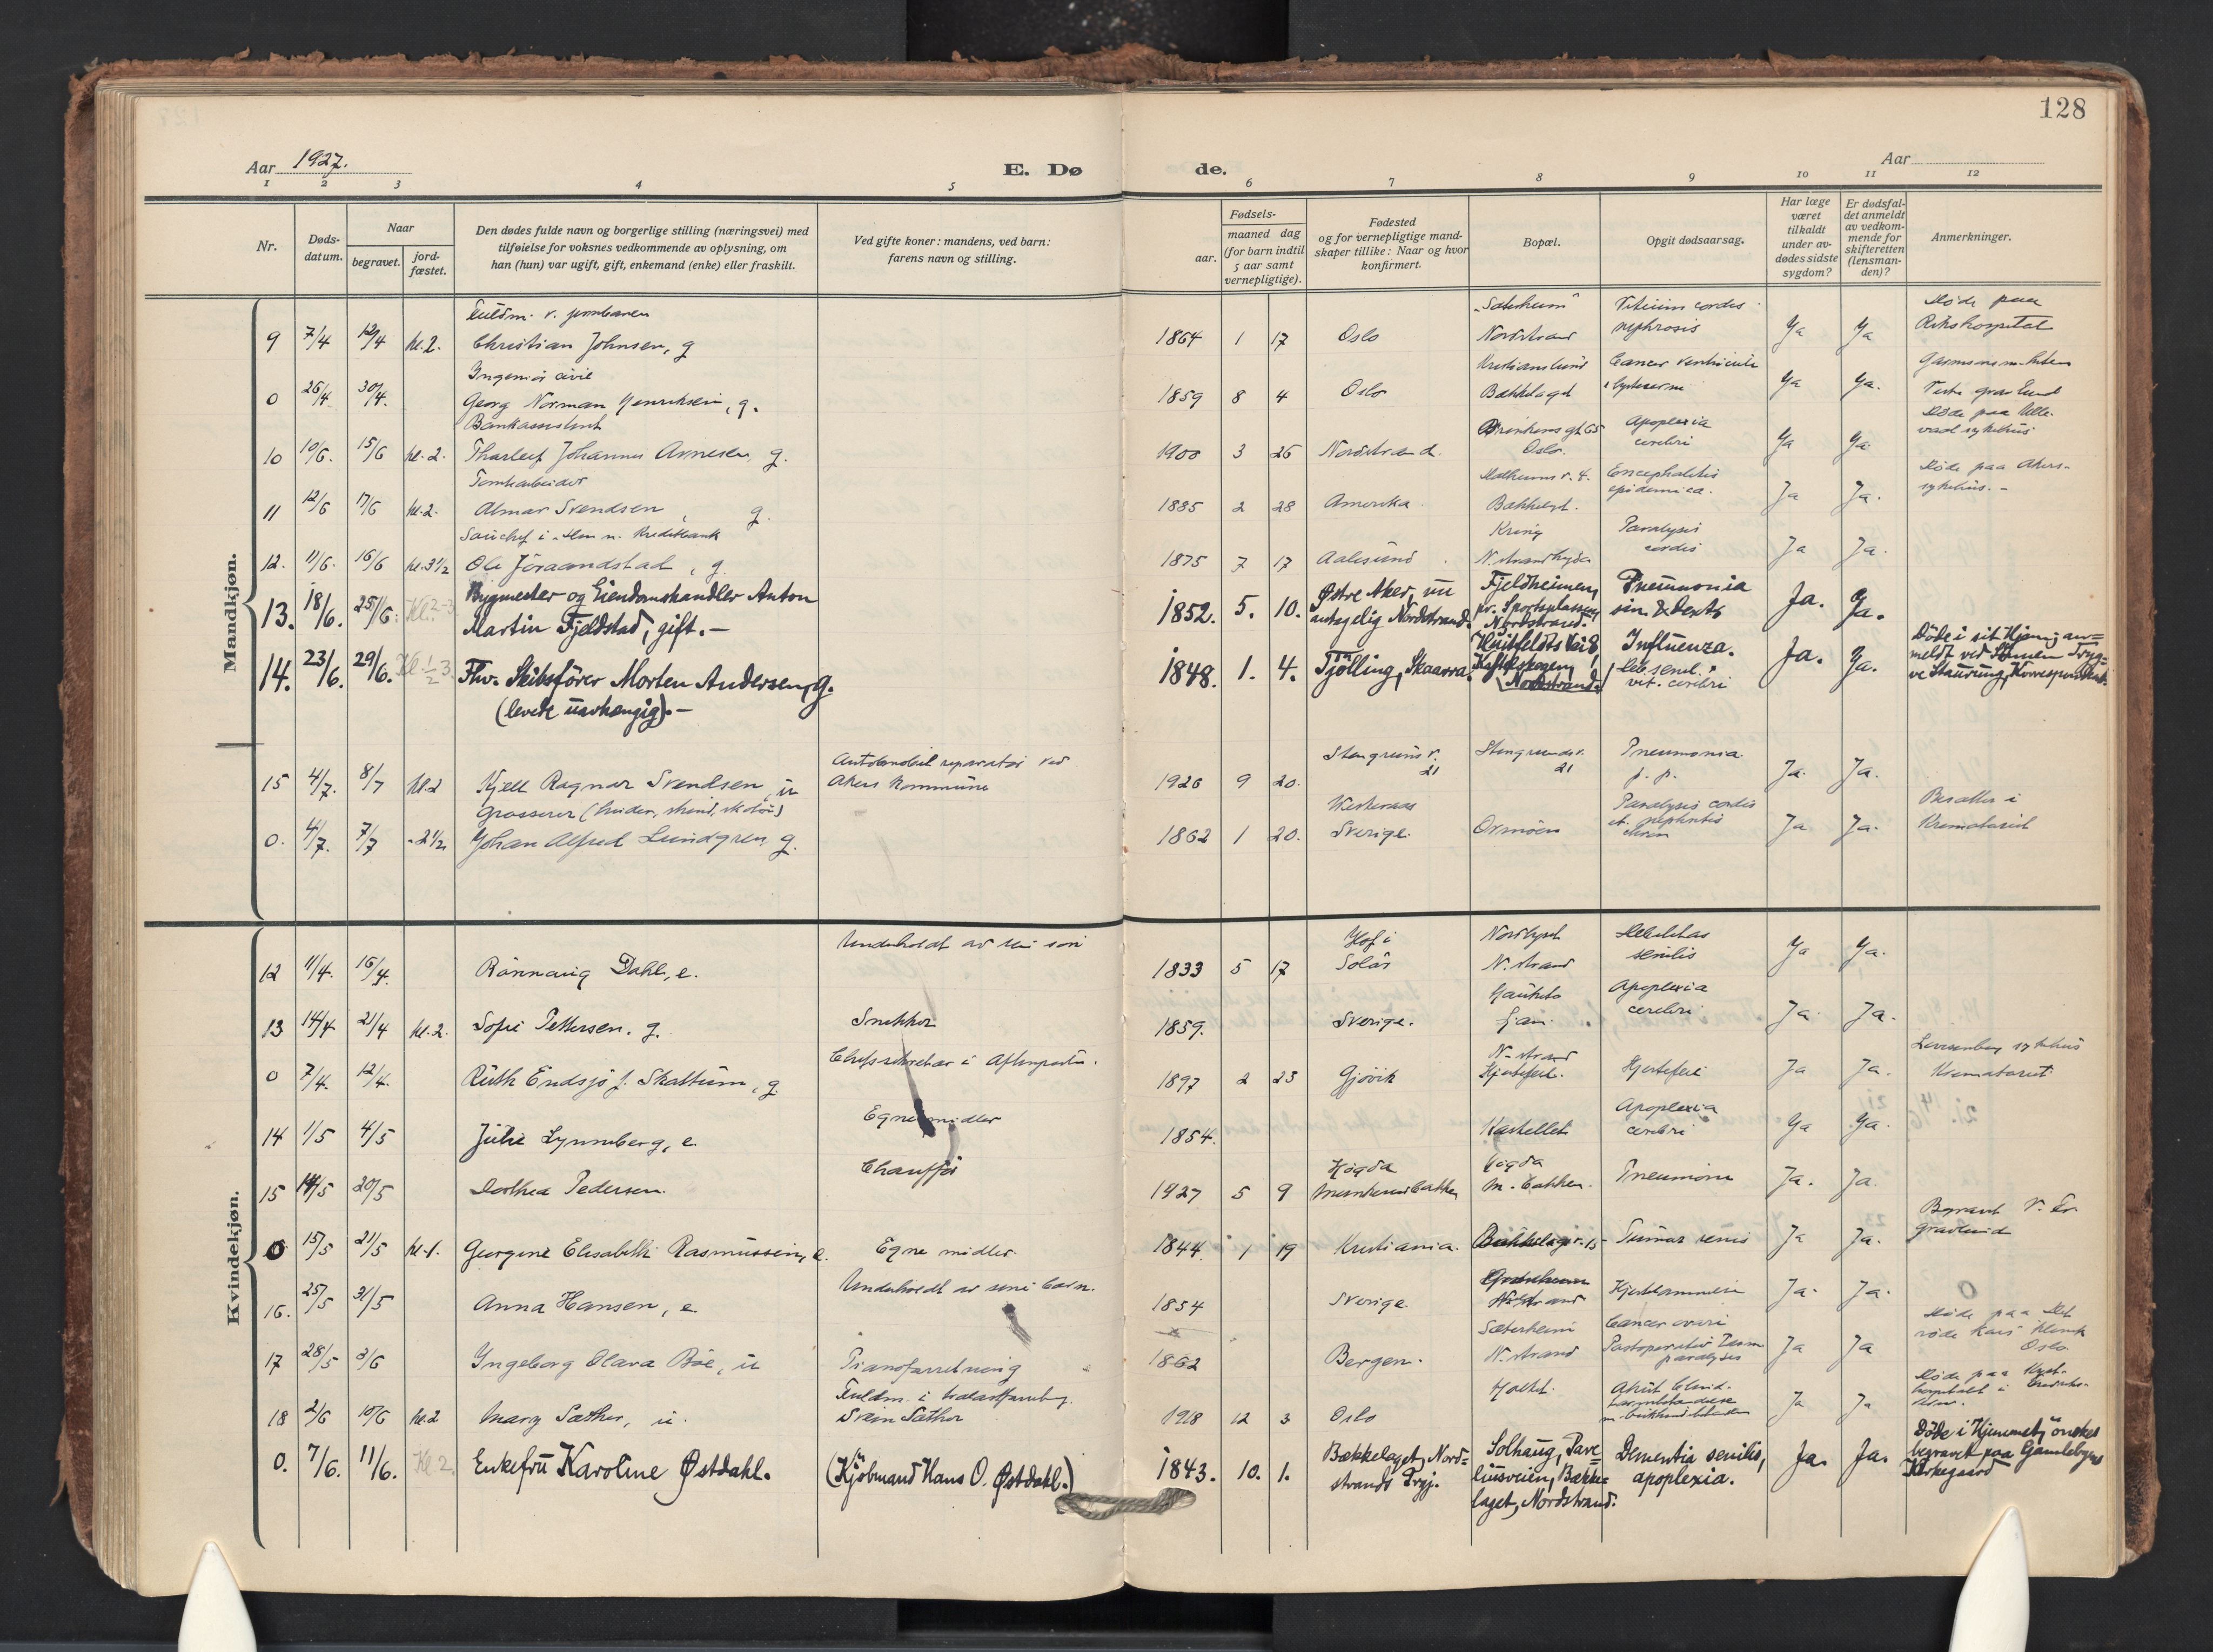 128
Aar 1927.
E. Dø
de.
Aar
1 2 3 4 5 6 7 8 9 10 11 12
Nr.
Døds-
datum.
Naar
begravet.
jord-
fæstet.
Den dødes fulde navn og borgerlige stilling (næringsvei) med
tilføielse for voksnes vedkommende av oplysning, om
han (hun) var ugift, gift, enkemand (enke) eller fraskilt.
Ved gifte koner: mandens, ved barn:
farens navn og stilling.
Fødsels-
aar.
maaned dag
(for barn indtil
5 aar samt
vernepligtige).
Fødested
og for vernepligtige mand-
skaper tillike: Naar og hvor
konfirmert.
Bopæl.
Opgit dødsaarsag.
Har læge
været
tilkaldt
under av-
dødes sidste
sygdom?
Er dødsfal-
det anmeldt
av vedkom-
mende for
skifteretten
(lensman-
den)?
Anmerkninger.
Mandkjøn.
9 7/4 12/4 kl. 2. Christian Johnsen, g 1864 1 17 Oslo "Sæterheim" Nordstrand Vitium cordis nephrosis Ja Ja Døde paa Rikshospital
Ingeniør civil
0 26/4 30/4. Georg Norman Henriksen, g. 1859 8 4 Oslo Bækkelaget Cancer ventriculi Ja Ja.
Bankassistent
10 10/6. 15/6 kl. 2. Thorleif Johannes Arnesen, g. 1900 3 26 Nordstrand. Oslo. Apoplexia cerebri Ja Ja Døde paa Ulle-
vaal sykehus
Tomtearbeider
11 12/6 17/6 kl. 2. Almar Svendsen, g. 1885 2 28 Amerika Bækkelaget. Encephalitis epidemica. Ja Ja. Døde paa Akers-
sykehus. -
12. 11/6. 16/6 kl. 3 1/2 Ole Jöraandstad, g. 1875 7 17 Aalesund N. strandhøgda Paralysis cordis Ja Ja.
13. 18/6. 25/6. Kl. 2-3 Bygmester og Eiendomshandler Anton
Martin Fjeldstad, gift. - 1852. 5. 10. Østre Aker, nu
antagelig Nordstrand. Fjeldheimen,
pr. Sportsplassen,
Nordstrand. Pneumonia
sin. & dextr. Ja. Ja.
14. 23/6. 29/6. Kl 1/2 3. Fhv. Skibsfører Morten Andersen, g.
(levede uavhengig). - 1848. 1. 4. Tjölling, Skaarra. Huitfeldts Vei 8,
Nordstrand. Influenza. Ja. Ja. Døde i sit Hjem; an=
meldt ved Sønnen Tryg=
ve
15 4/7. 8/7 kl. 2 Kjell Ragnar Svendsen, u Automobilreparatør ved
Akers kommune 1926 9 20. Stengrunds v.
21 Stengrunds v.
21 Pneumonia
Ja. Ja.
Grosserer
0. 4/7. 7/7 - 2 1/2 Johan Alfred Lundgren, g. 1862 1 20. Westeraas
Sverige. Ormöen Paralysis cordis
et nephritis
chron Ja Ja. Bisættes i
Krematoriet
Kvindekjøn.
12 11/4. 16/4. Rönnaug Dahl, e. Underholdt av sin sön 1833 5 17 Hof i
Solör N. strand Debilitas
senilis Ja Ja.
13 14/4 21/4 kl. 2. Sofie Pettersen. g. Snekker 1859. Sverige. Hauketo
Ljan. Apoplexia
cerebri Ja Ja.
0 7/4. 12/4. Ruth Endsjö f. Skattum, g. Chefsekretær i Aftenposten. 1897 2 23 Gjövik N. strand
Hjertefeil. Hjertefeil Ja Ja. Lovisenberg sykehus
Krematoriet
14 1/5 4/5 Julie Lynneberg, e. Egne midler 1854. Kastellet Apoplexia
cerebri Ja Ja.
15 14/5 20/5 Dorthea Pedersen. Chauffør 1927 5 9 Munkerudbakken M. bakken. Pneumoni Ja. Ja.
0 15/5 21/5 kl. 1. Georgine Elisabeth Rasmussen, e. Egne midler 1844. 1 19 Kristiania. Bækkelagsv. 15 Tumor renis Ja Ja. gravlund
16. 25/5 31/5 Anna Hansen, e Underholdt av sine barn. 1854 Sverige. N. strand Ja. Ja. 0
17 28/5 3/6 Ingeborg Olava Böe, u Pianoforretning 1862 Bergen. Sæterheim
N. strand Cancer ovarii
Postoperativ
paralyse Ja Ja Døde paa Det
røde kors klinik
Oslo
18 2/6 10/6 kl. 2 Mary Sæther, u. Svein Sæther 1918 12 3 Oslo Holtet. Akut Ja Ja Døde paa
0. 7/6. 11/6. Kl 2. Enkefru Karoline Østdahl. (Kjöbmand Hans O. Østdahl.) 1843. 10. 1. Bækkelaget, Nord=
strands Prgj. Solhaug, Pave
liusveien, Bække=
laget, Nordstrand. Dementia senilis,
apoplexia. Ja. Ja. Døde i Hjemmet; ønskes
begravet paa Gamlebyens
Kirkegaard